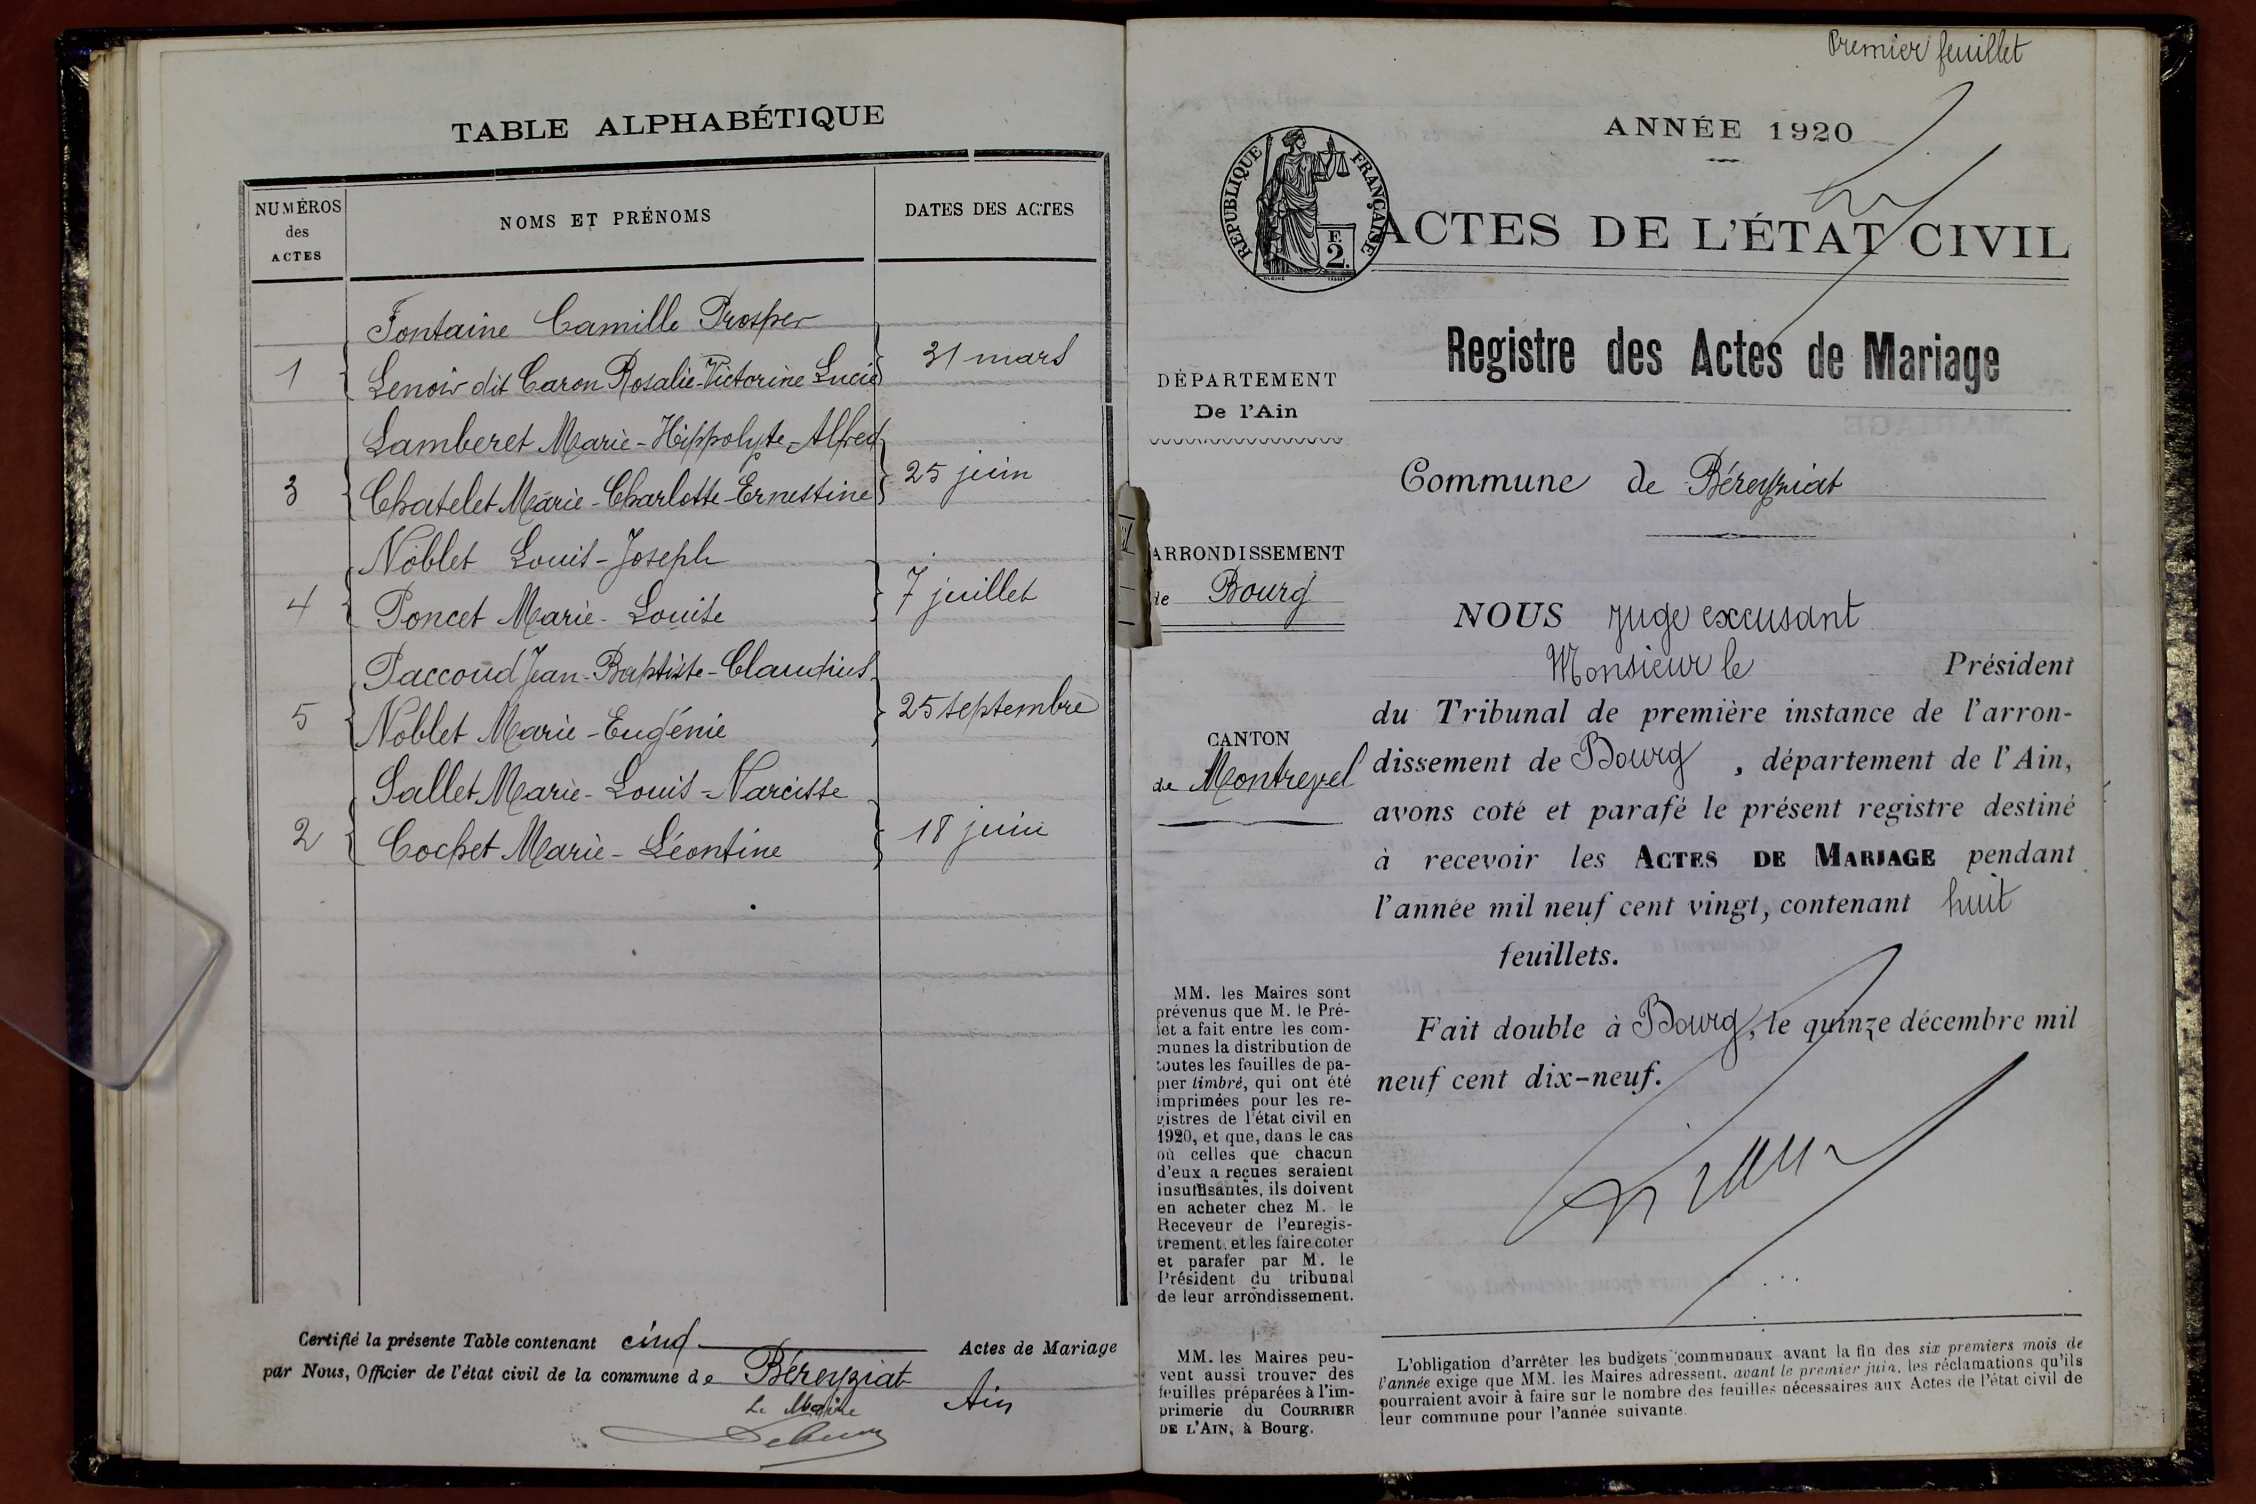 TABLE ALPHABÉTIQUE
NUMÉROS
des
ACTES
NOMS ET PRÉNOMS
DATES DES ACTES
Fontaine Camille Prosper
1
Lenoir dit Caron Rosalie-Victorine Lucie
31 mars
Lamberet Marie-Hippolyte-Alfred
3
Chatelet Marie-Charlotte-Ernestine
25 juin
Noblet Louis-Joseph
4
Poncet Marie-Louise
7 juillet
Paccoud Jean-Baptiste-Claudius
5
Noblet Marie-Eugénie
25 septembre
Sallet Marie-Louis-Narcisse
2
Cochet Marie-Léontine
18 juin
Certifié la présente Table contenant cinq Actes de Mariage
par Nous, Officier de l'état civil de la commune de Béreyziat
Ain
Le Maire
Premier feuillet
ANNÉE 1920
RÉPUBLIQUE FRANÇAISE
F.
2.
ACTES DE L'ÉTAT CIVIL
Registre des Actes de Mariage
DÉPARTEMENT
De l'Ain
Commune de Béreyziat
ARRONDISSEMENT
de Bourg
CANTON
de Montrevel
NOUS juge excusant
Monsieur le Président
du Tribunal de première instance de l'arron-
dissement de Bourg, département de l'Ain,
avons coté et parafé le présent registre destiné
à recevoir les ACTES DE MARIAGE pendant
l'année mil neuf cent vingt, contenant huit
feuillets.
Fait double à Bourg, le quinze décembre mil
neuf cent dix-neuf.
MM. les Maires sont
prévenus que M. le Pré-
fet a fait entre les com-
munes la distribution de
toutes les feuilles de pa-
pier timbré, qui ont été
imprimées pour les re-
gistres de l'état civil en
1920, et que, dans le cas
où celles que chacun
d'eux a reçues seraient
insuffisantes, ils doivent
en acheter chez M. le
Receveur de l'enregis-
trement, et les faire coter
et parafer par M. le
Président du tribunal
de leur arrondissement.
MM. les Maires peu-
vent aussi trouver des
feuilles préparées à l'im-
primerie du COURRIER
DE L'AIN, à Bourg.
L'obligation d'arrêter les budgets communaux avant la fin des six premiers mois de
l'année exige que MM. les Maires adressent, avant le premier juin, les réclamations qu'ils
pourraient avoir à faire sur le nombre des feuilles nécessaires aux Actes de l'état civil de
leur commune pour l'année suivante.